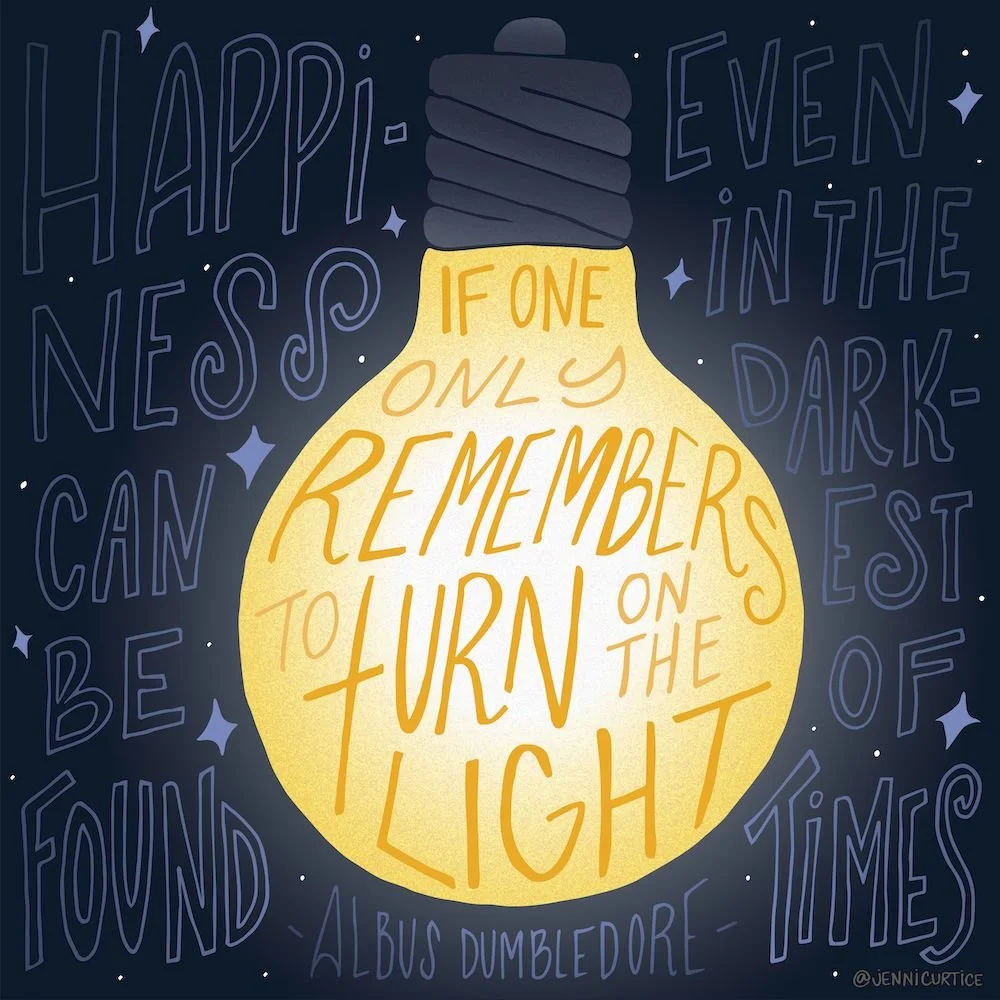 HAPPi-
NESS
CAN
BE
FOUND
EVEN
iN THE
DARK-
EST
OF
TiMES
IF ONE
ONLY
REMEMBERS
TO TURN ON THE
LIGHT
-ALBUS DUMBLEDORE-
@JENNICURTICE